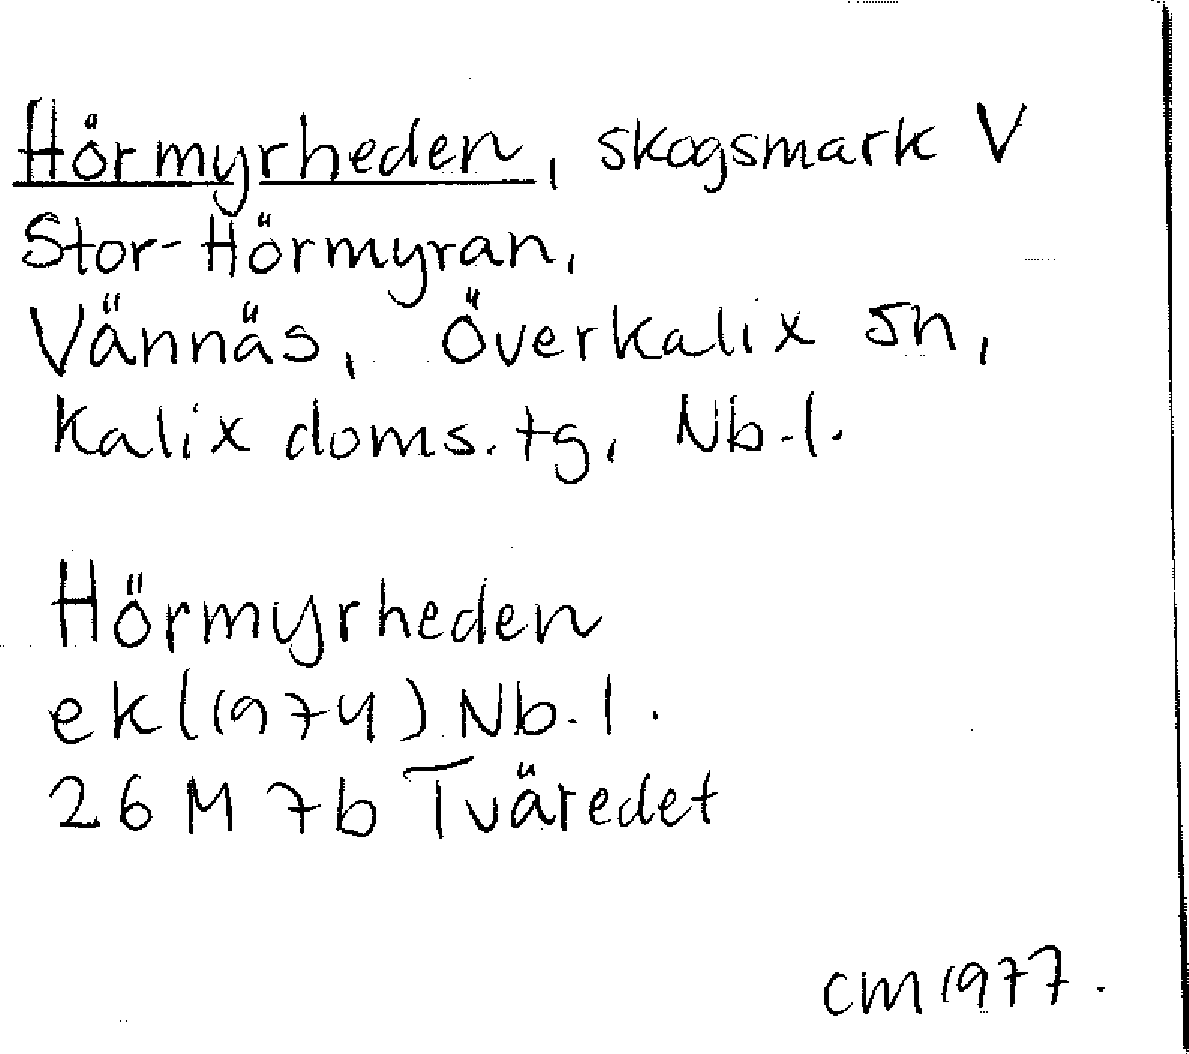 Hörmyrheden, skogsmark V
Stor-Hörmyran,
Vännäs, Överkalix sn,
Kalix doms.tg, Nb.l.
Hörmyrheden
ek (1974) Nb.l.
26 M 7b Tväredet
CM 1977.